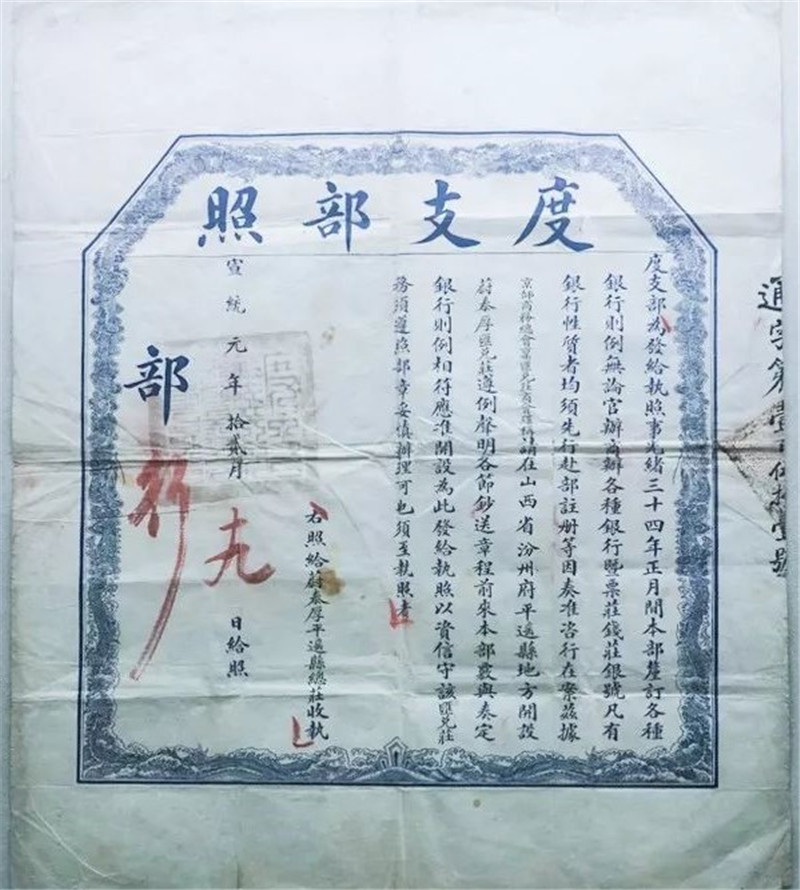 通字第壹百伍拾壹號
度支部照
度支部為發給執照事光緒三十四年正月間本部釐訂各種
銀行則例無論官辦商辦各種銀行暨票莊錢莊銀號凡有
銀行性質者均須先行赴部註册等因奏准咨行在案茲據
京師商務總會票匯兌莊請在山西省汾州府平遥縣地方開設
蔚泰厚匯兌莊遵例聲明各節鈔送章程前來本部覈與奏定
銀行則例相符應准開設為此發給執照以資信守該匯兌莊
務須遵照部章妥慎辦理可也須至執照者
右照給蔚泰厚平遥縣總莊收執
宣統元年拾貳月日給照
部行